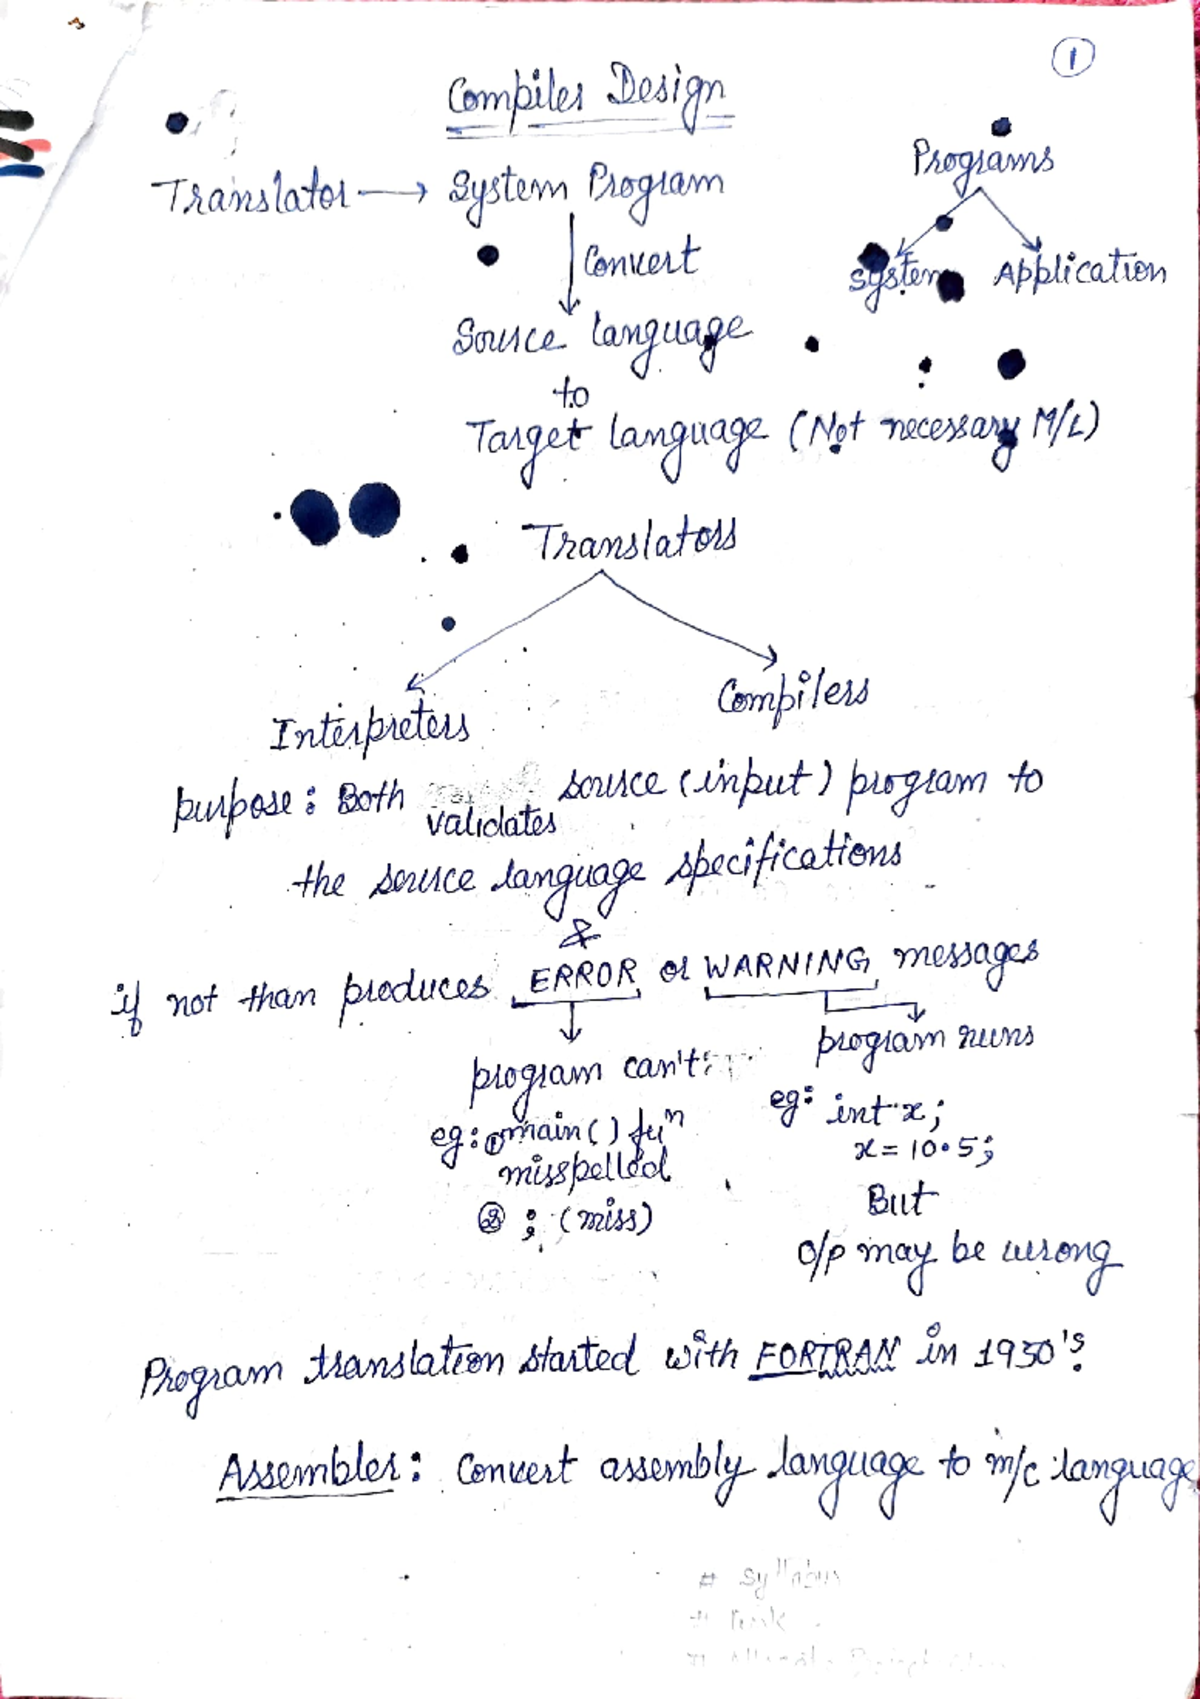 1
Compiler Design
Translator → System Program
Programs
System Application
Convert
Source language
to
Target language (Not necessary M/L)
Translators
Interpreters
Compilers
purpose: Both validates source (input) program to
the source language specifications
&
if not than produces ERROR or WARNING messages
program can't
program runs
eg: ① main() fuⁿ
misspelled
② ; (miss)
eg: int x;
x = 10.5;
But
o/p may be wrong
Program translation started with FORTRAN in 1950's.
Assembler: Convert assembly language to m/c language
# Syllabus